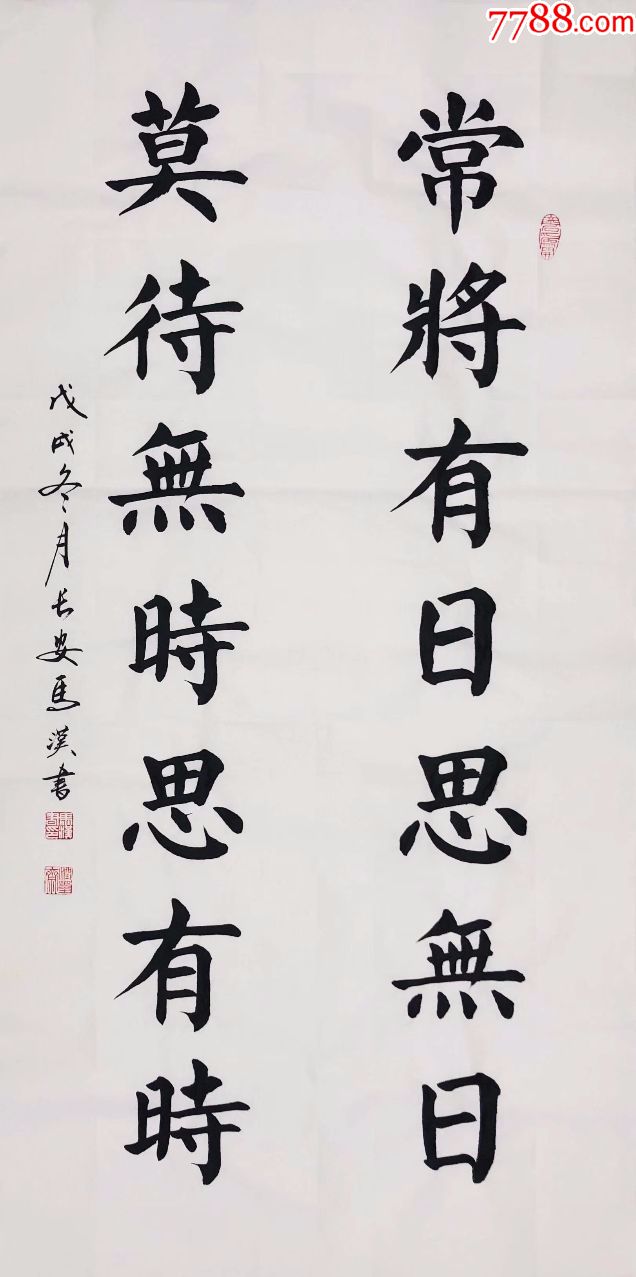 7788.com
常將有日思無日
莫待無時思有時
戊戌冬月长安馬漢書